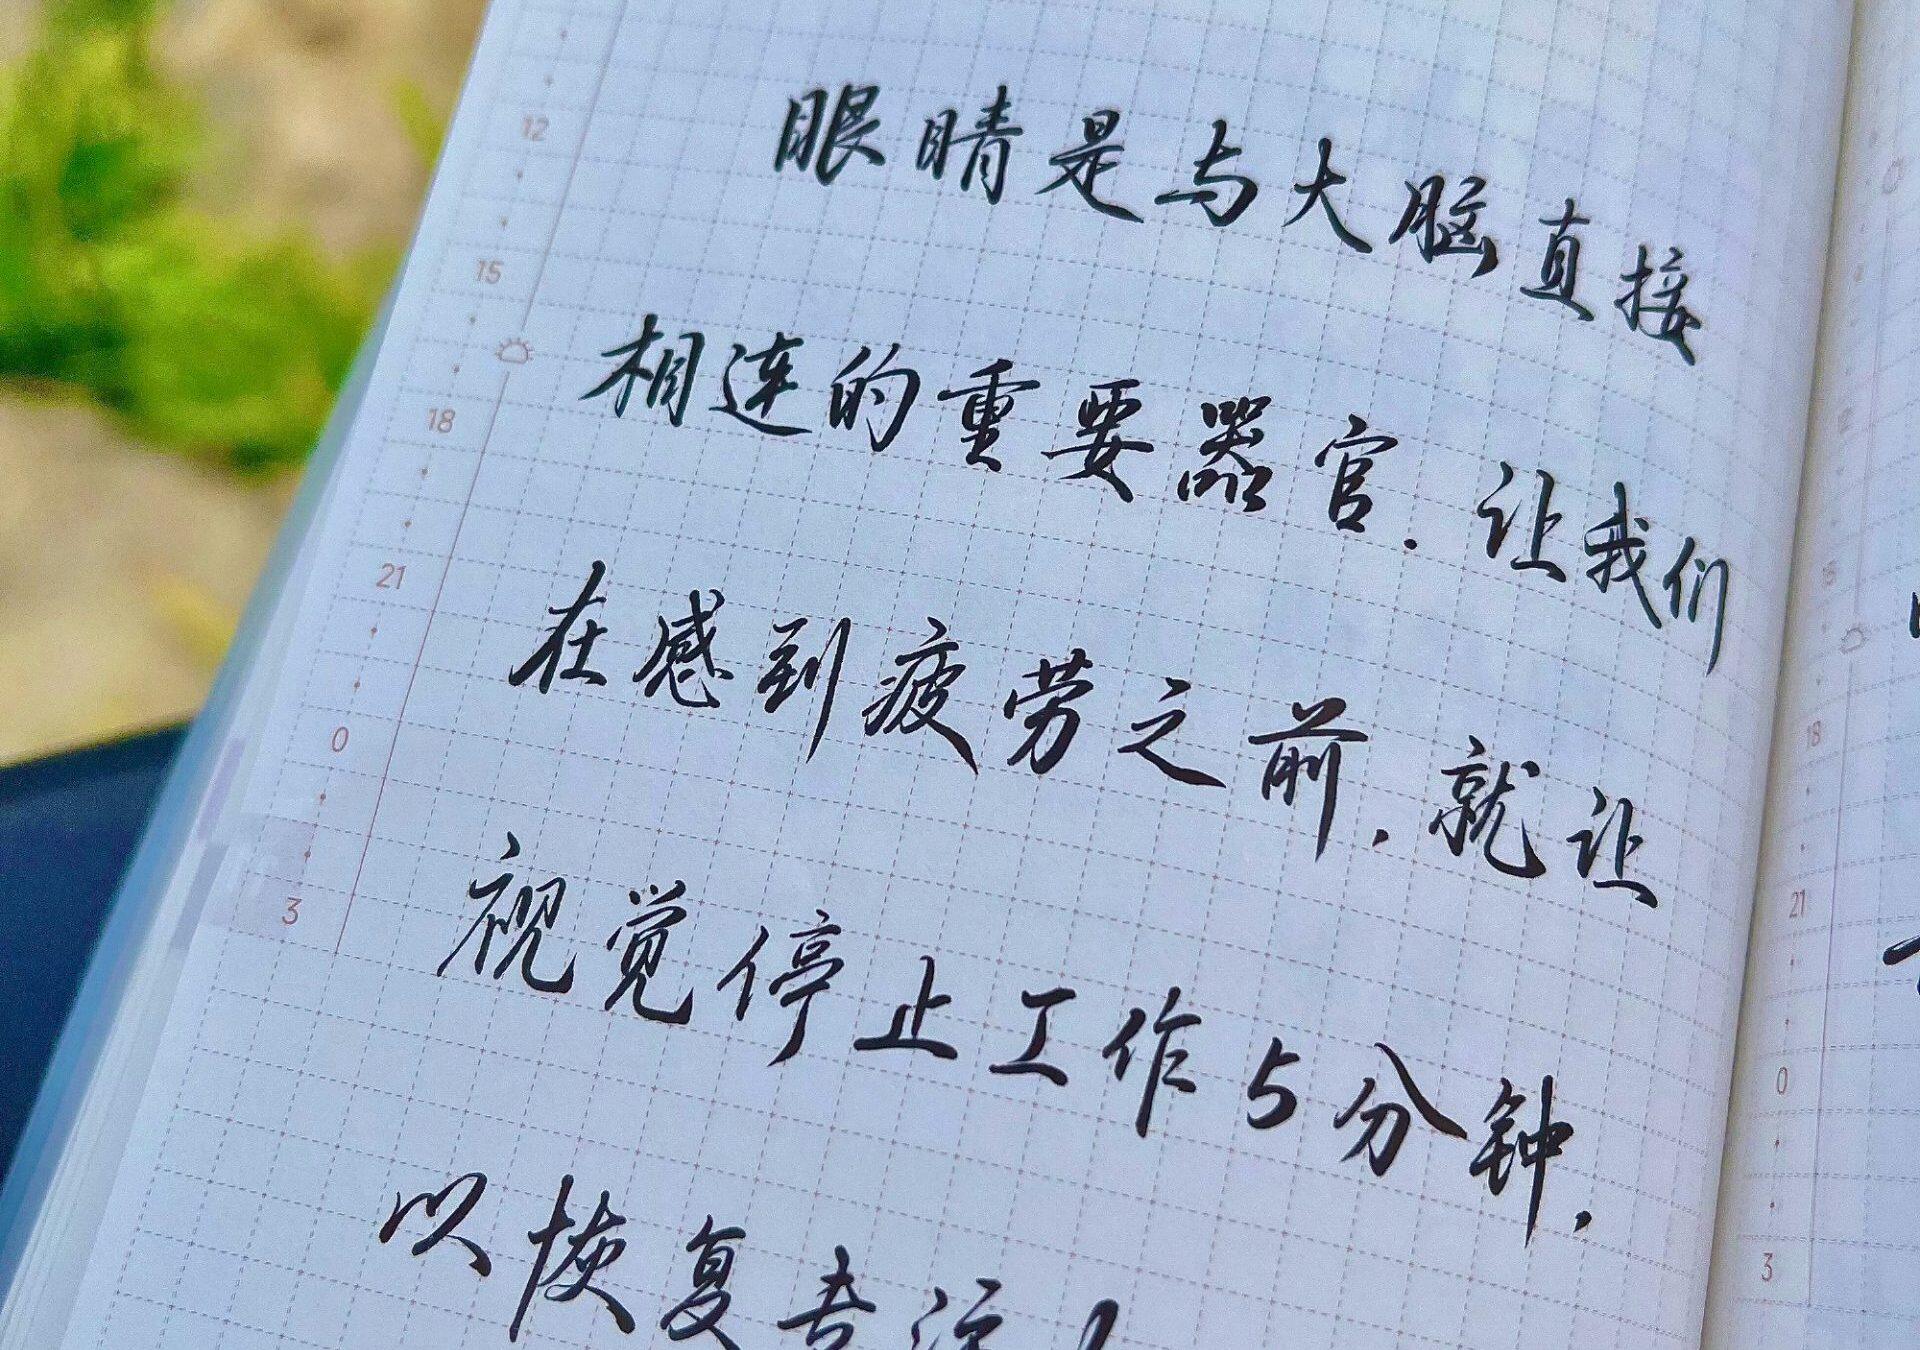 12
15
18
21
0
3
眼睛是与大脑直接
相连的重要器官.让我们
在感到疲劳之前,就让
视觉停止工作5分钟,
以恢复专注
18
21
0
3